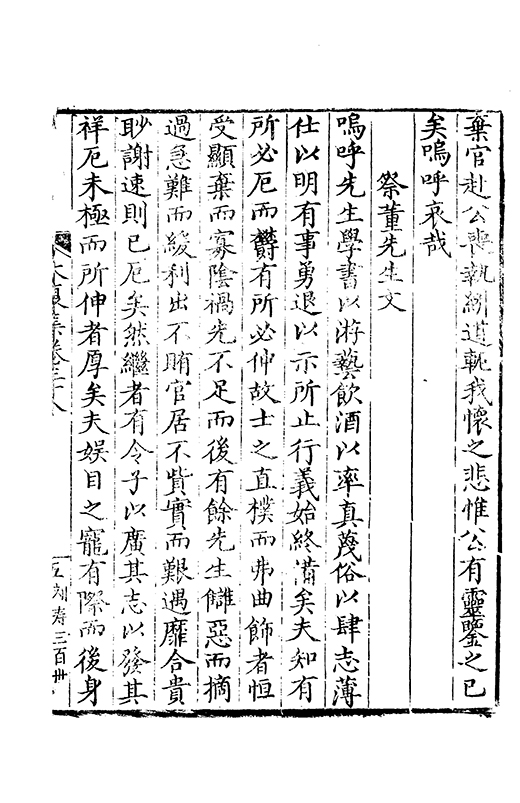 棄官赴公喪執紼道軏我懷之悲惟公有靈鑒之已
矣嗚呼哀哉
祭董先生文
嗚呼先生學書以游藝飲酒以率真蔑俗以肆志薄
仕以明有事勇退以示所止行義始終備矣夫知有
所必厄而欝有所必伸故士之直樸而弗曲飾者恒
受顯棄而寡陰禍先不足而後有餘先生讎惡而摘
過急難而緩利出不賄官居不貲實而艱遇靡合貴
眇謝速則已厄矣然繼者有令子以廣其志以發其
祥厄未極而所伸者厚矣夫娱目之寵有際而後身
集卷三十八
三百卅